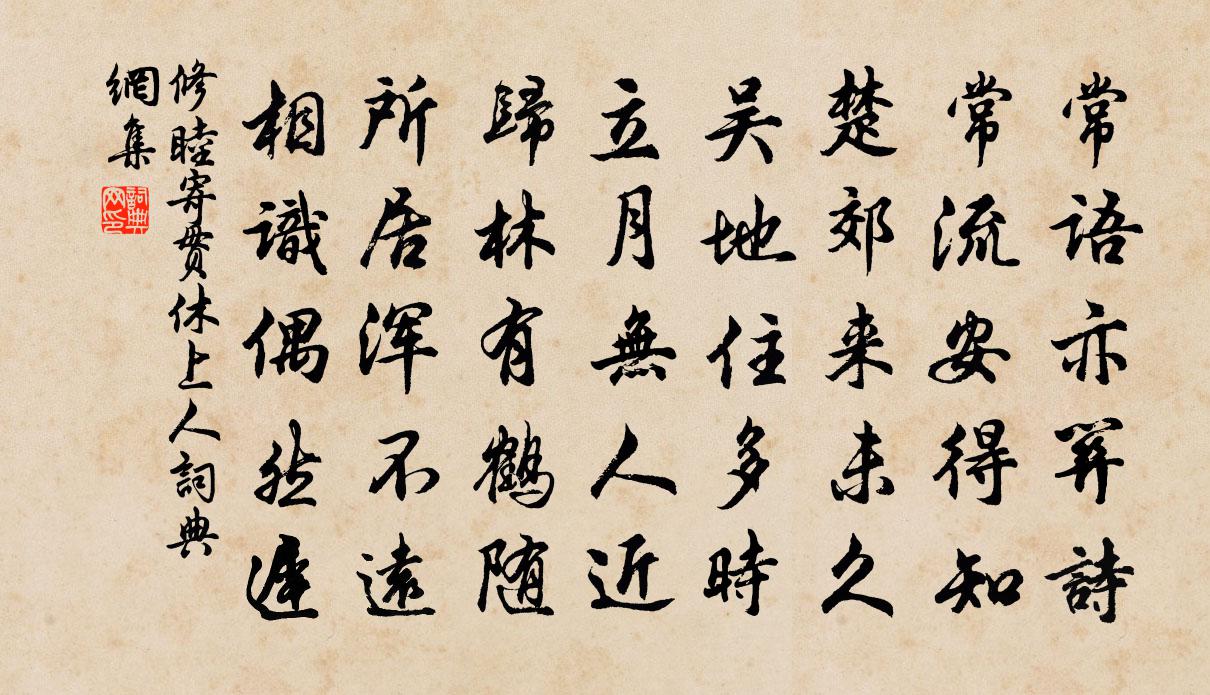 常語亦關詩
常流安得知
楚郊来未久
吴地住多時
立月無人近
歸林有鶴随
所居渾不遠
相識偶然遲
修睦寄貫休上人詞典
網集
詞典
网印